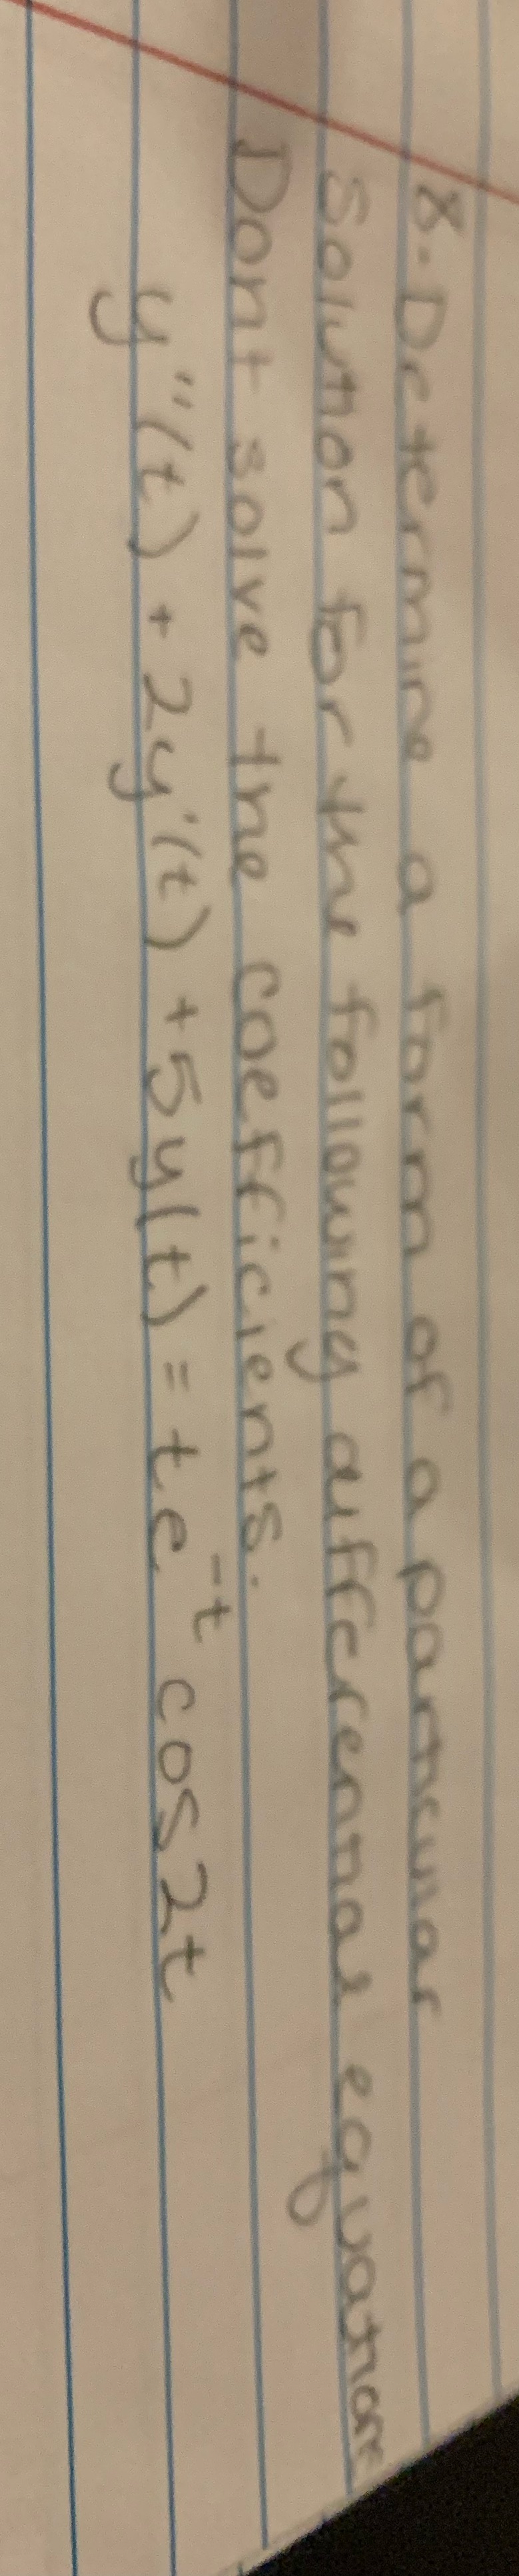 8. Determine a form of a particular
Solution for the following differential equation
Dont solve the coefficients.
y"(t) + 2y'(t) + 5y(t) = te^-t cos2t